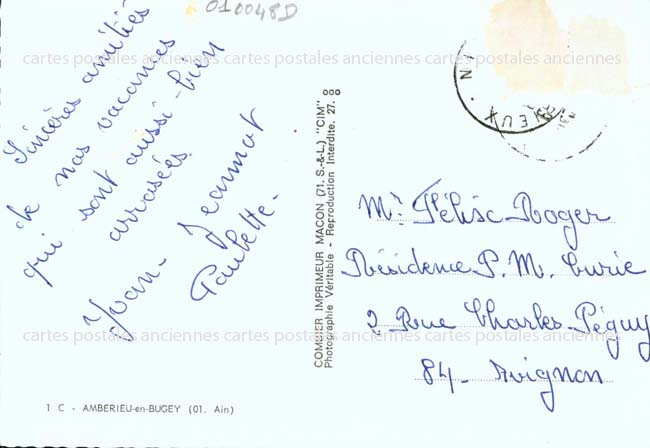 010048D
Sincères amitiés
de nos vacances
qui sont aussi bien
arrosées.
Yvan - Jeannot
Paulette -
1 C - AMBERIEU-en-BUGEY (01. Ain)
COMBIER IMPRIMEUR MACON (71. S.-&-L.) "CIM"
Photographie Véritable - Reproduction Interdite. 27.
Mr Félise Roger
Résidence P. M. Curie
2 Rue Charles Péguy
84 - Avignon
cartes postales anciennes cartes postales anciennes cartes postales anciennes cartes postales anciennes
cartes postales anciennes cartes postales anciennes cartes postales anciennes cartes postales anciennes